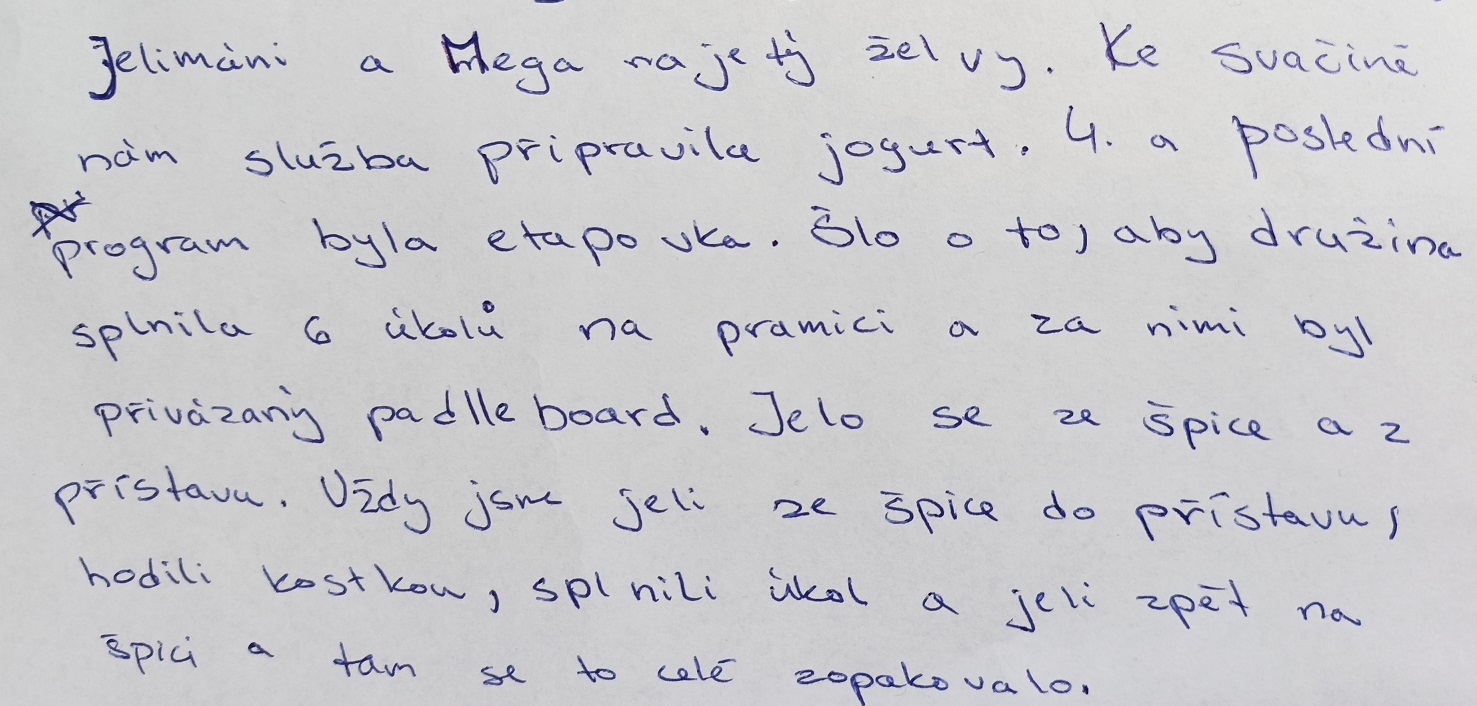 Jelimáni a Mega najetý želvy. Ke svačině
nám služba připravila jogurt. 4. a poslední
program byla etapovka. Šlo o to, aby družina
splnila 6 úkolů na pramici a za nimi byl
přivázaný padlleboard. Jelo se ze špice a z
přístavu. Vždy jsme jeli ze špice do přístavu,
hodili kostkou, splnili úkol a jeli zpět na
špici a tam se to celé zopakovalo.